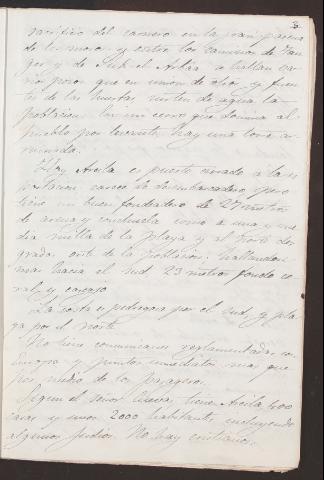 3
sacrificio del carnero en la gran pascua
de los moros y entre los caminos de Tan
ger y de Suk el Arbáa se hallan va
rios pozos que en union de otros y fuen
tes de las huertas, surten de agua la
poblacion. En un cerro que domina al
pueblo por levante hay una torre ar
ruinada.
Hoy Arcila es puerto cerrado á la es
portacion, carece de desembarcadero pero
tiene un buen fondeadero de 27 metros
de arena y conchuela como a una y me
dia milla de la playa y al
oeste de la poblacion; hallandose
mas hacia el Sud 23 metros fondo co
ral y cascajo
La costa es pedregosa por el Sud, y pla
ya por el norte
No tiene comunicaciones reglamentadas con
Europa y puntos inmediatos mas que
por medio de los pasageros.
Segun el señor tiene Arcila 400
casas y unos 2000 habitantes incluyendo
algunos judios. No hay cristianos.